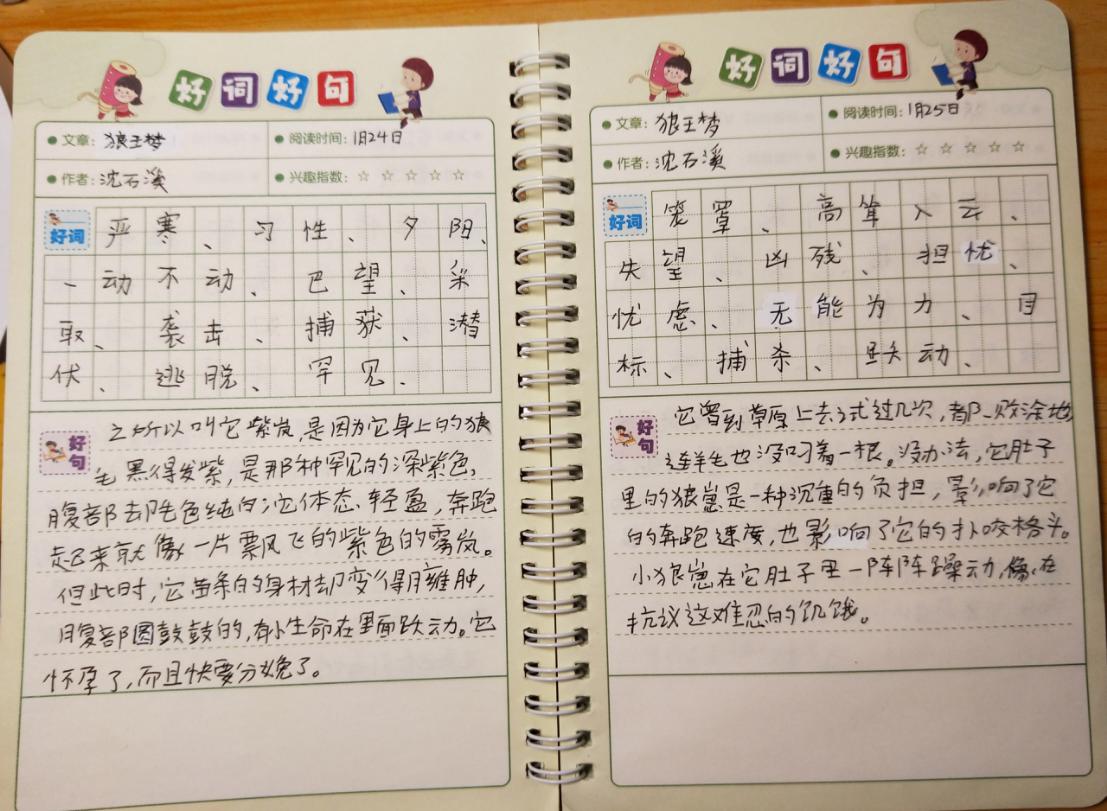 好词好句
文章：狼王梦
阅读时间：1月24日
作者：沈石溪
兴趣指数：☆ ☆ ☆ ☆ ☆
好词
严寒、习性、夕阳、
一动不动、巴望、采
取、袭击、捕获、潜
伏、逃脱、罕见、
好句
之所以叫它紫岚，是因为它身上的狼
毛黑得发紫，是那种罕见的深紫色，
腹部却毛色纯白；它体态轻盈，奔跑
起来就像一片飘飞的紫色的雾岚。
但此时，它苗条的身材却变得臃肿，
腹部圆鼓鼓的，有小生命在里面跃动。它
怀孕了，而且快要分娩了。
好词好句
文章：狼王梦
阅读时间：1月25日
作者：沈石溪
兴趣指数：☆ ☆ ☆ ☆ ☆
好词
笼罩、高耸入云、
失望、凶残、担忧、
忧虑、无能为力、目
标、捕杀、跃动、
好句
它曾到草原上去试过几次，都一败涂地
连羊毛也没叼着一根。没办法，它肚子
里的狼崽是一种沉重的负担，影响了它
的奔跑速度，也影响了它的扑咬格斗。
小狼崽在它肚子里一阵阵躁动，像在
抗议这难忍的饥饿。